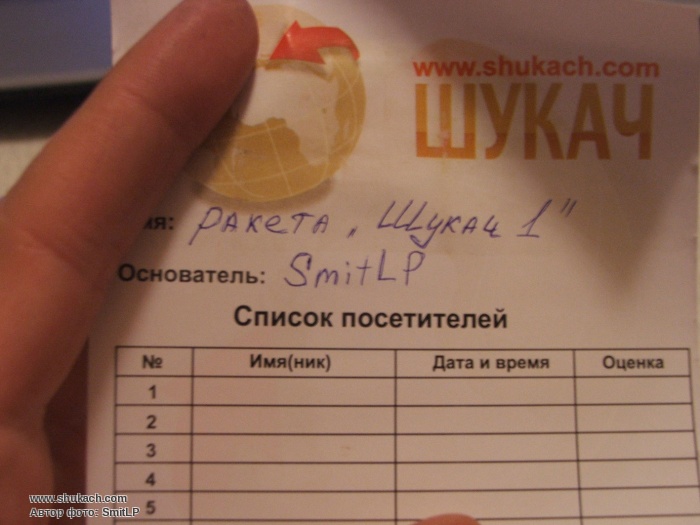 www.shukach.com
ШУКАЧ
ия: ракета „Шукач 1"
Основатель: SmitLP
Список посетителей
№ Имя(ник) Дата и время Оценка
1
2
3
4
5
www.shukach.com
Автор фото: SmitLP